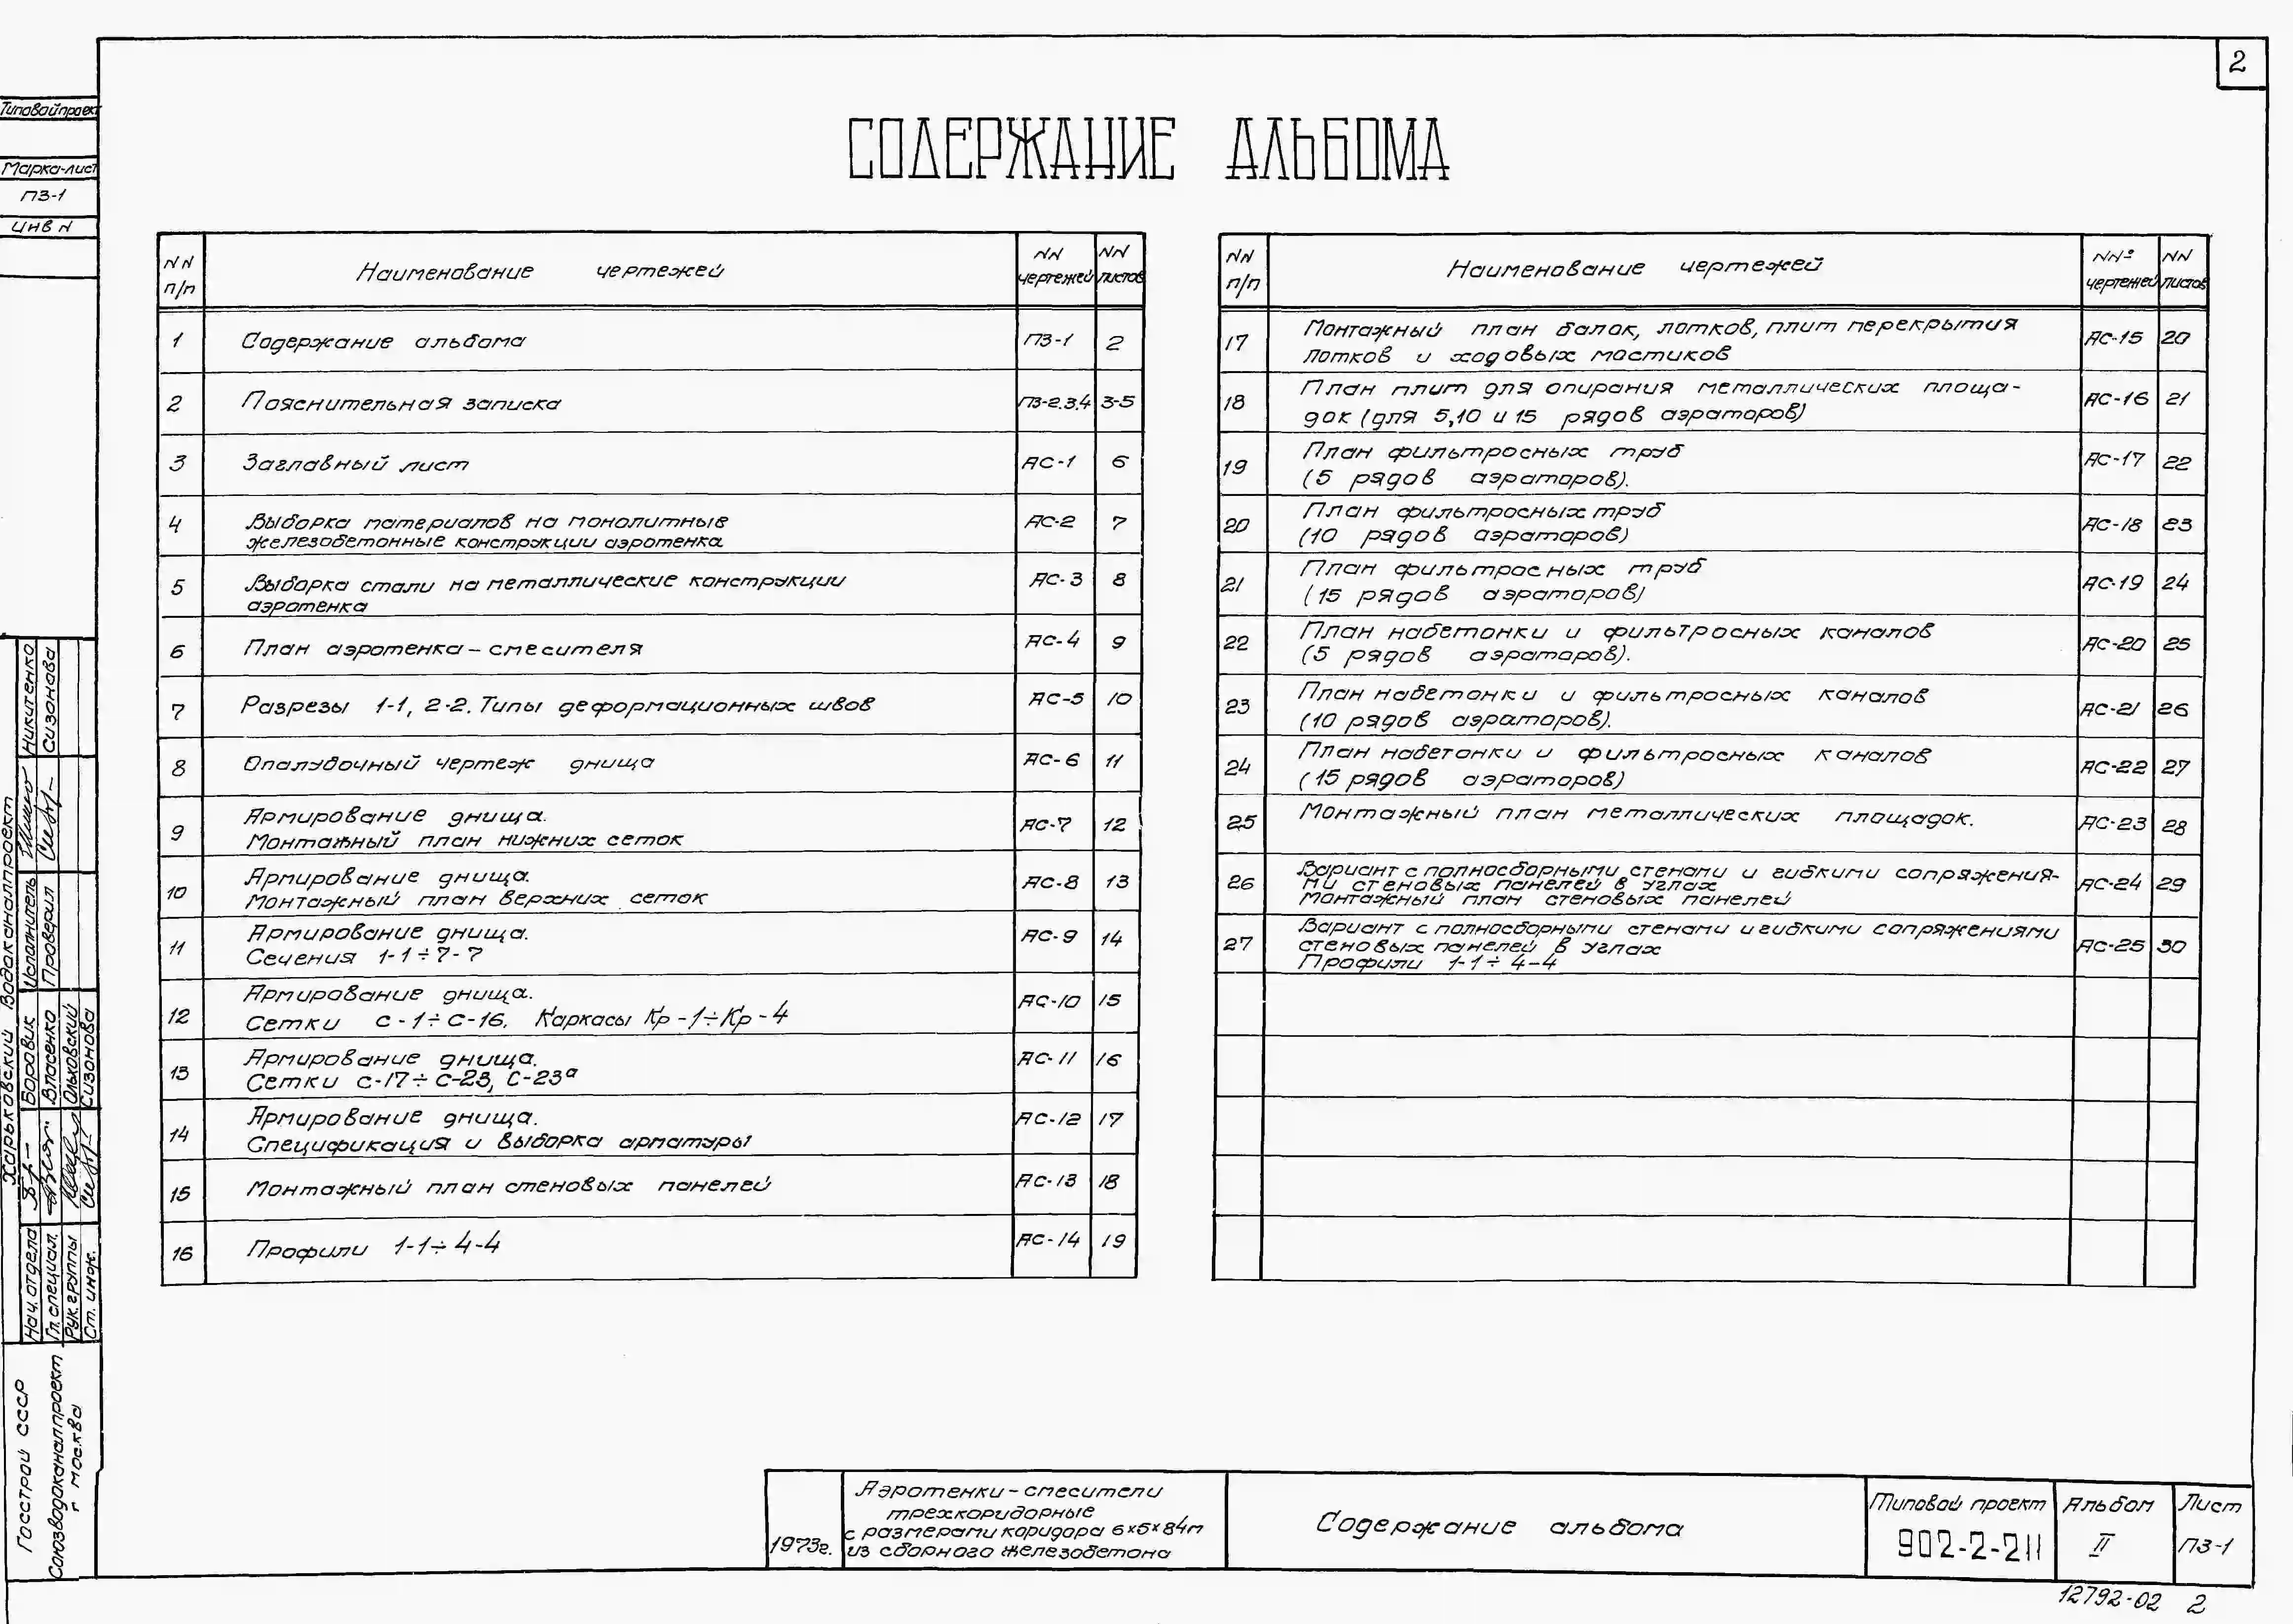 2
Типовой проект
Марка-лист
ПЗ-1
Инв N
СОДЕРЖАНИЕ АЛЬБОМА
NN п/п Наименование чертежей NN чертежей NN листов
1 Содержание альбома ПЗ-1 2
2 Пояснительная записка ПЗ-2.3.4 3-5
3 Заглавный лист АС-1 6
4 Выборка материалов на монолитные АС-2 7
железобетонные конструкции аэротенка
5 Выборка стали на металлические конструкции АС-3 8
аэротенка
6 План аэротенка-смесителя АС-4 9
7 Разрезы 1-1, 2-2. Типы деформационных швов АС-5 10
8 Опалубочный чертеж днища АС-6 11
9 Армирование днища. АС-7 12
Монтажный план нижних сеток
10 Армирование днища. АС-8 13
Монтажный план верхних сеток
11 Армирование днища. АС-9 14
Сечения 1-1÷7-7
12 Армирование днища. АС-10 15
Сетки с-1÷с-16. Каркасы Кр-1÷Кр-4
13 Армирование днища. АС-11 16
Сетки с-17÷с-23, с-23а
14 Армирование днища. АС-12 17
Спецификация и выборка арматуры
15 Монтажный план стеновых панелей АС-13 18
16 Профили 1-1÷4-4 АС-14 19
NN п/п Наименование чертежей NNº чертежей NN листов
17 Монтажный план балок, лотков, плит перекрытия АС-15 20
лотков и ходовых мостиков
18 План плит для опирания металлических площа- АС-16 21
док (для 5,10 и 15 рядов аэраторов)
19 План фильтросных труб АС-17 22
(5 рядов аэраторов).
20 План фильтросных труб АС-18 23
(10 рядов аэраторов)
21 План фильтросных труб АС-19 24
(15 рядов аэраторов)
22 План набетонки и фильтросных каналов АС-20 25
(5 рядов аэраторов).
23 План набетонки и фильтросных каналов АС-21 26
(10 рядов аэраторов).
24 План набетонки и фильтросных каналов АС-22 27
(15 рядов аэраторов)
25 Монтажный план металлических площадок. АС-23 28
26 Вариант с полносборными стенами и гибкими сопряжения- АС-24 29
ми стеновых панелей в углах
Монтажный план стеновых панелей
27 Вариант с полносборными стенами и гибкими сопряжениями АС-25 30
стеновых панелей в углах
Профили 1-1÷4-4
Харьковский Водоканалпроект
Нач. отдела Боровик Исполнитель Никитенко
Гл. специал. Власенко Проверил Сизонова
Рук. группы Ольховский
Ст. инж. Сизонова
Госстрой СССР
Союзводоканалпроект
г Москва
1973г.
Аэротенки-смесители
трехкоридорные
с размерами коридора 6×5×84м
из сборного железобетона
Содержание альбома
Типовой проект
902-2-211
Альбом
II
Лист
ПЗ-1
12792-02 2